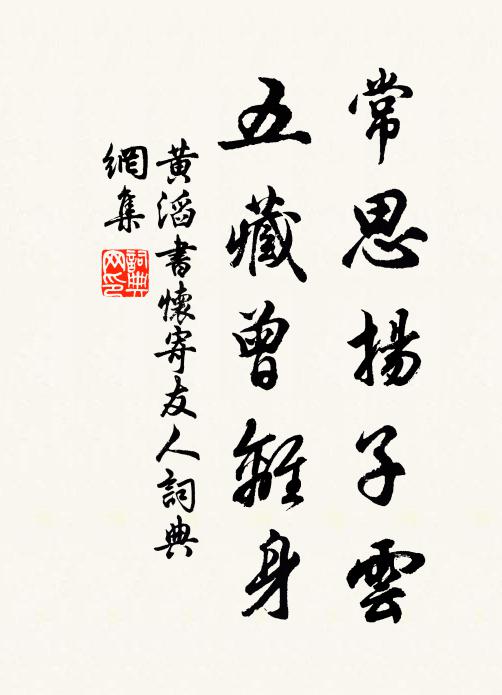 常思揚子雲
五藏曾離身
黃滔書懷寄友人詞典
網集
詞典
网印